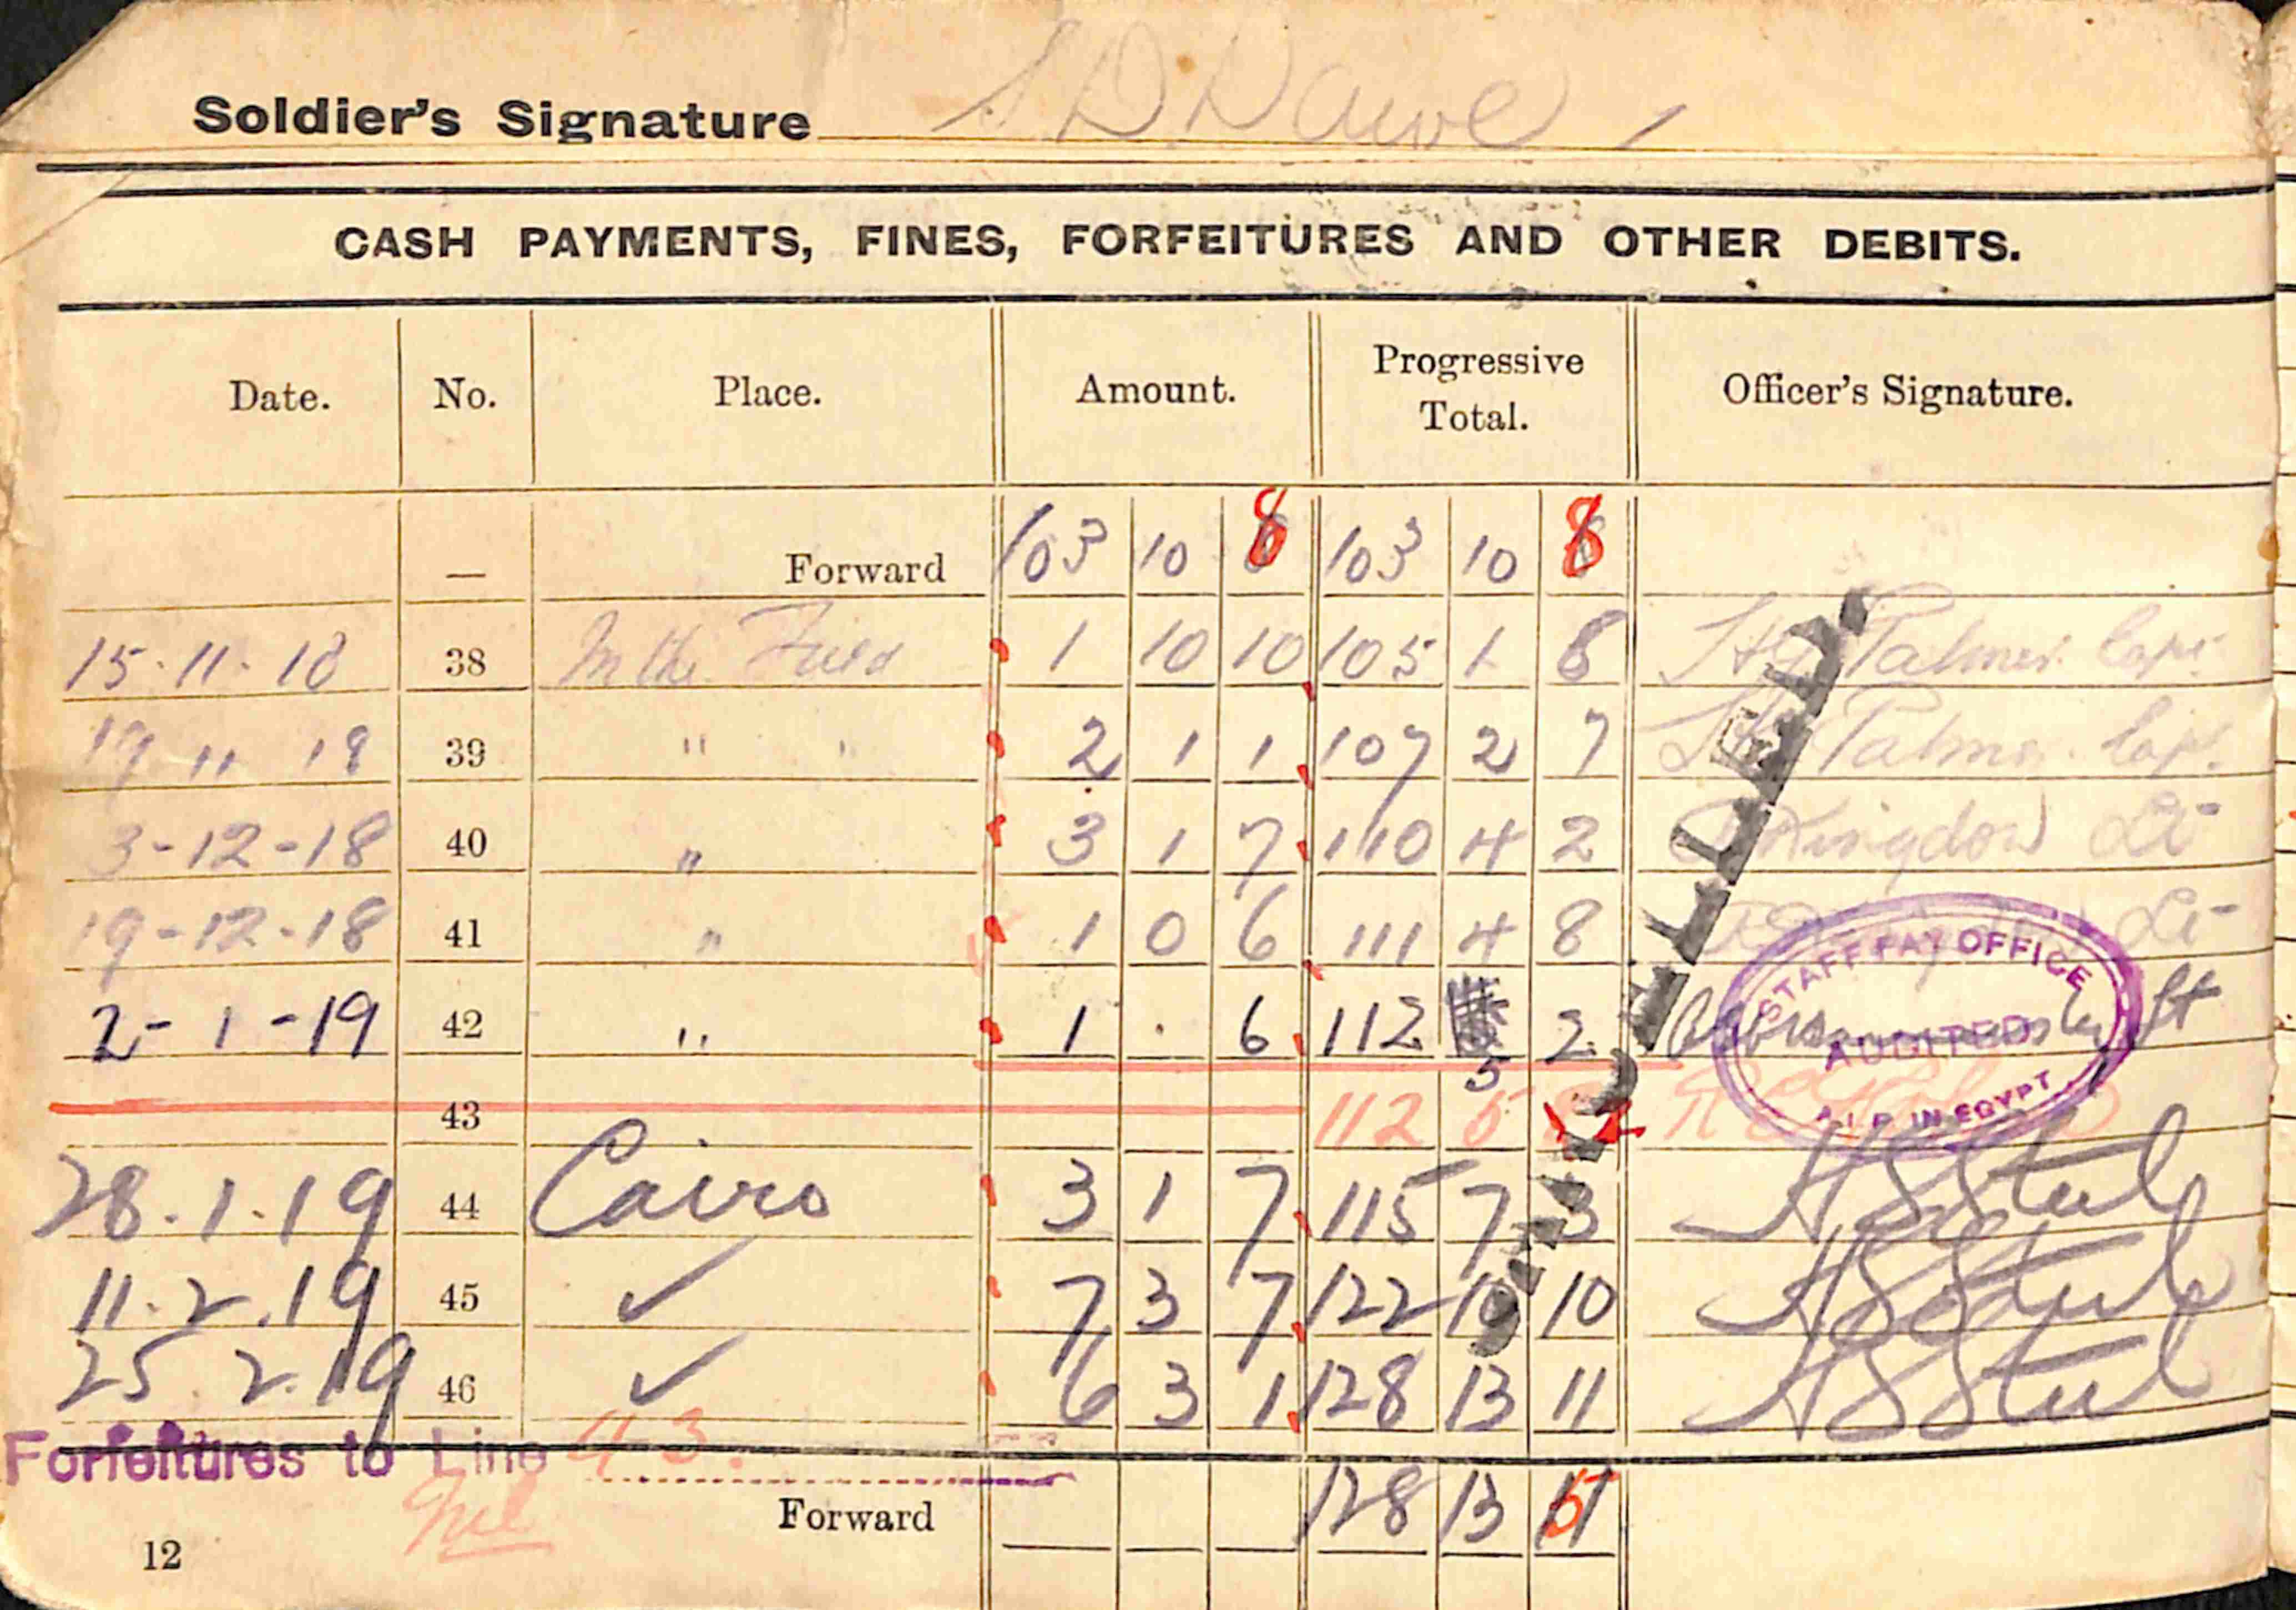 Soldier's Signature S D Dawe
CASH PAYMENTS, FINES, FORFEITURES AND OTHER DEBITS.
Date. No. Place. Amount. Progressive Total. Officer's Signature.
— Forward 103 10 8 103 10 8
15·11·18 38 In the Field 1 10 10 105 1 8 Palmer Capt
19 11 18 39 " " 2 1 1 107 2 7 Palmer Capt
3-12-18 40 " 3 1 7 110 4 2 Kingdon Lt
19-12-18 41 " 1 0 6 111 4 8 Lt
2-1-19 42 " 1 · 6 112 5 2 Lt
43 112 5
28.1.19 44 Cairo 3 1 7 115 7 3
11.2.19 45 ✓ 7 3 7 122 10 10
25 2.19 46 ✓ 6 3 1 128 13 11
CANCELLED.
STAFF PAY OFFICE
AUDITED
A.I.F. IN EGYPT
Forfeitures to Line 43.
Nil
Forward 128 13 11
12